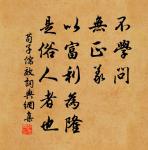 不學問
無正義
以富利為隆
是俗人者也
荀子儒效詞典網集